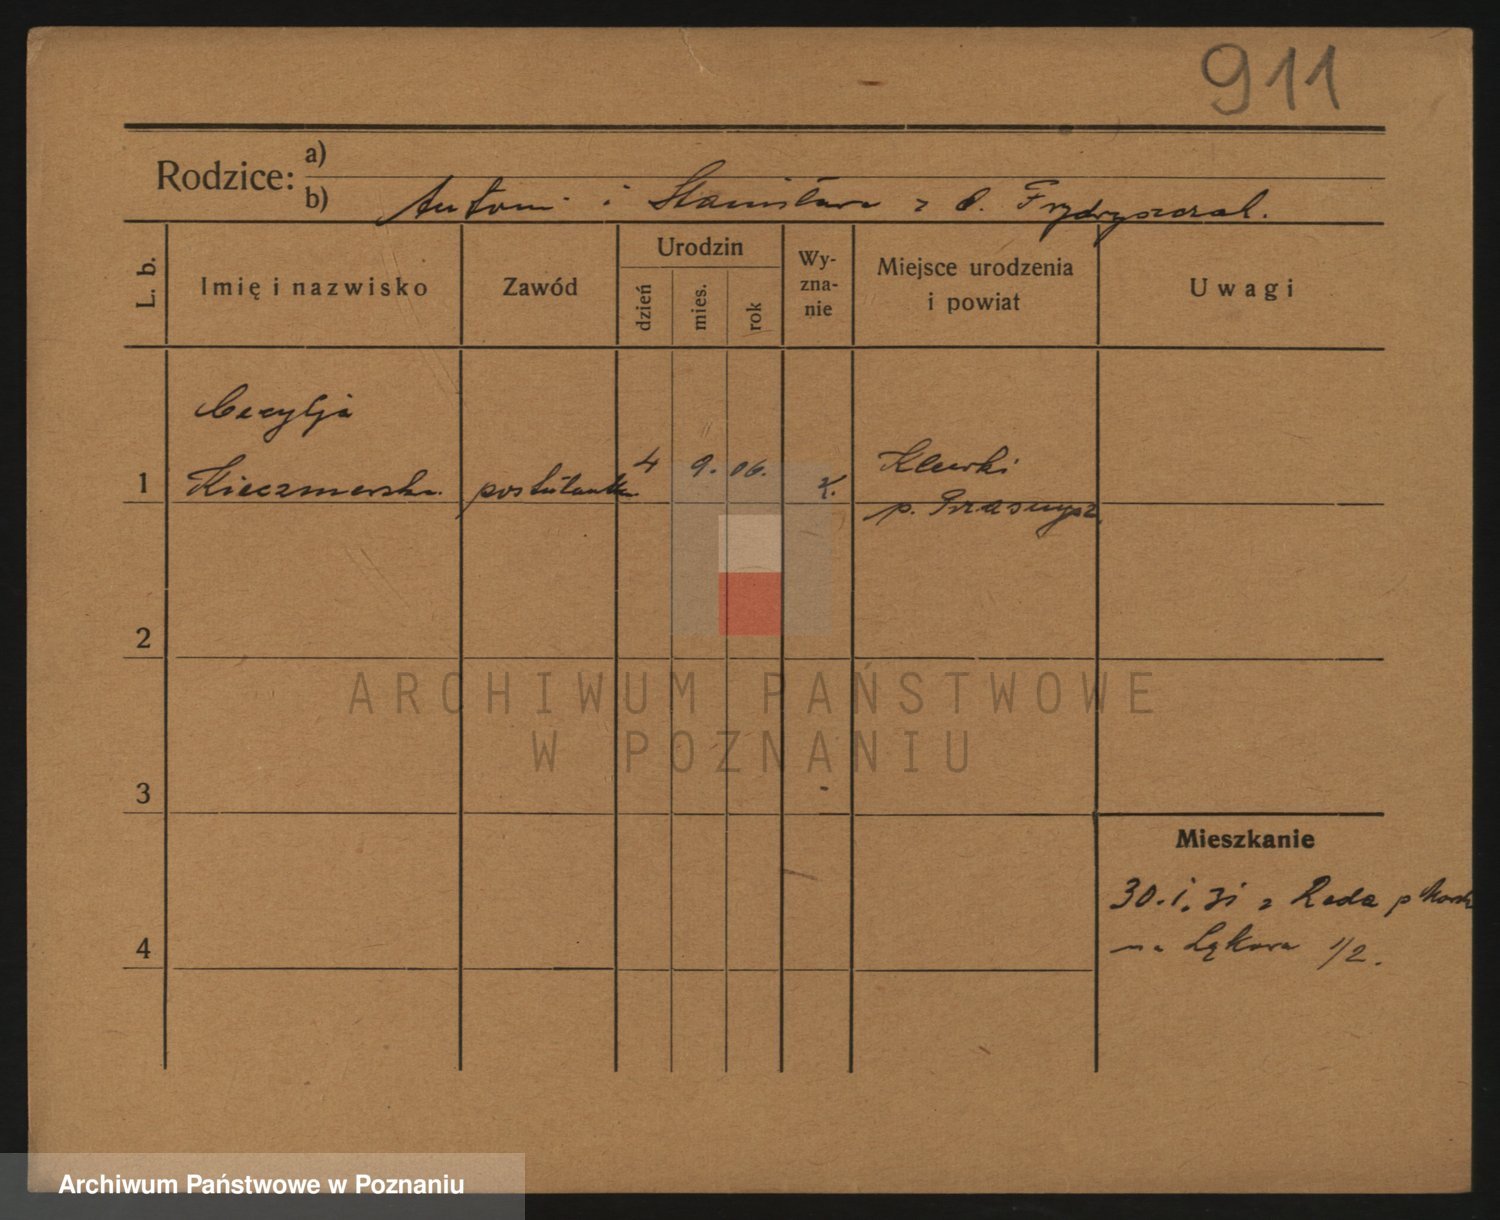 911
Rodzice:
a)
b) Antoni i Stanisława z d. Frydryszczak.
L. b.
Imię i nazwisko
Zawód
Urodzin
dzień
mies.
rok
Wy-
zna-
nie
Miejsce urodzenia
i powiat
Uwagi
Cecylja
1 Kieczmerska postulantka 4 9. 06. k. Klewki
p. Przasnysz
2
3
4
Mieszkanie
30. i. 31 z Reda p Morsk
na Łąkowa 1/2.
ARCHIWUM PAŃSTWOWE
W POZNANIU
Archiwum Państwowe w Poznaniu